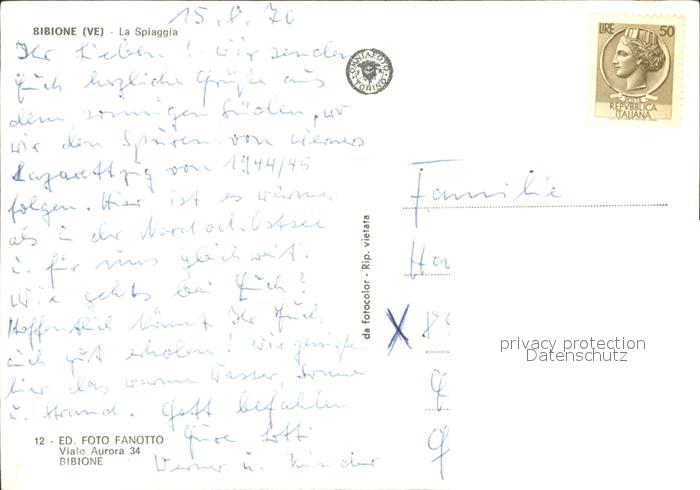 15.8.70
BIBIONE (VE) - La Spiaggia
Ihr Lieben! Wir senden
Euch herzliche Grüße aus
dem sonnigen Süden, wo
wir den Spuren von Werners
Lazarettzug von 1944/45
folgen. Hier ist es wärmer
als in der Nord od. Ostsee
u. für uns gleich weit.
Wie gehts bei Euch?
Hoffentlich könnt Ihr Euch
auch gut erholen! Wir genießen
hier das warme Wasser, Sonne
u. Strand. Gott befohlen
Eure Lotti
Werner u. Kinder
12 - ED. FOTO FANOTTO
Viale Aurora 34
BIBIONE
da fotocolor - Rip. vietata
TORINO
LIRE 50
POSTE
REPVBBLICA
ITALIANA
Familie
Ha
X 89
privacy protection
Datenschutz